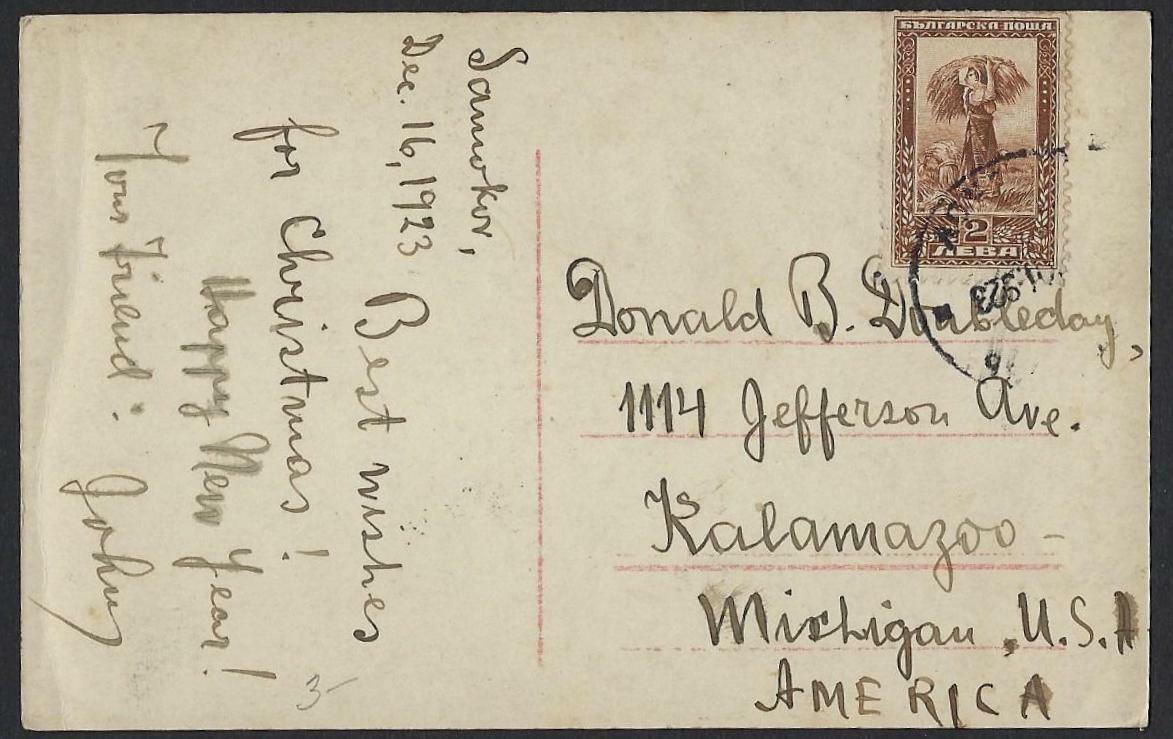 Samokov,
Dec. 16, 1923
Best wishes
for Christmas!
Happy New Year!
Your friend:
Johny
БЪЛГАРСКА ПОЩА
2
ЛЕВА
Donald B. Doubleday,
1114 Jefferson Ave.
Kalamazoo -
Michigan, U.S.A
AMERICA